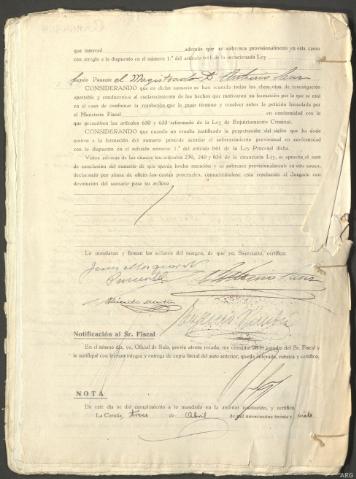 que interesó además que se sobresea provisionalmente ya esta causa
con arreglo a lo dispuesto en el número 1.º del artículo 641 de la mencionada Ley
Siendo Ponente el Magistrado D.
CONSIDERANDO que en dicho sumario se han evacuado todas las de investigación
y conducentes al esclarecimiento de los hechos que motivaron su formación por lo que se está
en el caso de confirmar la resolución que le puso término y resolver sobre la petición formulada por
el Ministerio Fiscal en conformidad con lo
que preceptúan los artículos 630 y 632 reformado de la Ley de Enjuiciamiento Criminal.
CONSIDERANDO que cuando no resulta justificada la perpetración del delito que ha dado
motivo a la formación del sumario procede acordar el sobreseimiento provisional en conformidad
con lo dispuesto en el artículo número 1.º del artículo 641 de la Ley Procesal dicha.
Vistos además de los citados los artículos 239, 240 y 634 de la Ley, se aprueba el auto
de conclusión del sumario de que queda hecha mención y se sobresee provisionalmente en esta causa,
declarando por ahora de oficio las costas procesales, comunicándose esta resolución al Juzgado con
devolución del sumario para su archivo
Lo mandaron y firman los señores del margen, de que yo, Secretario, certifico.
Notificación al Sr. Fiscal
En el mismo día, yo, Oficial de Sala, previo atento recado, me constituí en el del Sr. Fiscal y
le notifiqué con lectura íntegra y entrega de copia literal del auto anterior, queda enterado, rubrica y certifico.
NOTA
En este día se da cumplimiento a lo mandado en la anterior resolución, y certifico.
La Coruña, de Abril de mil novecientos treinta y siete
ARG